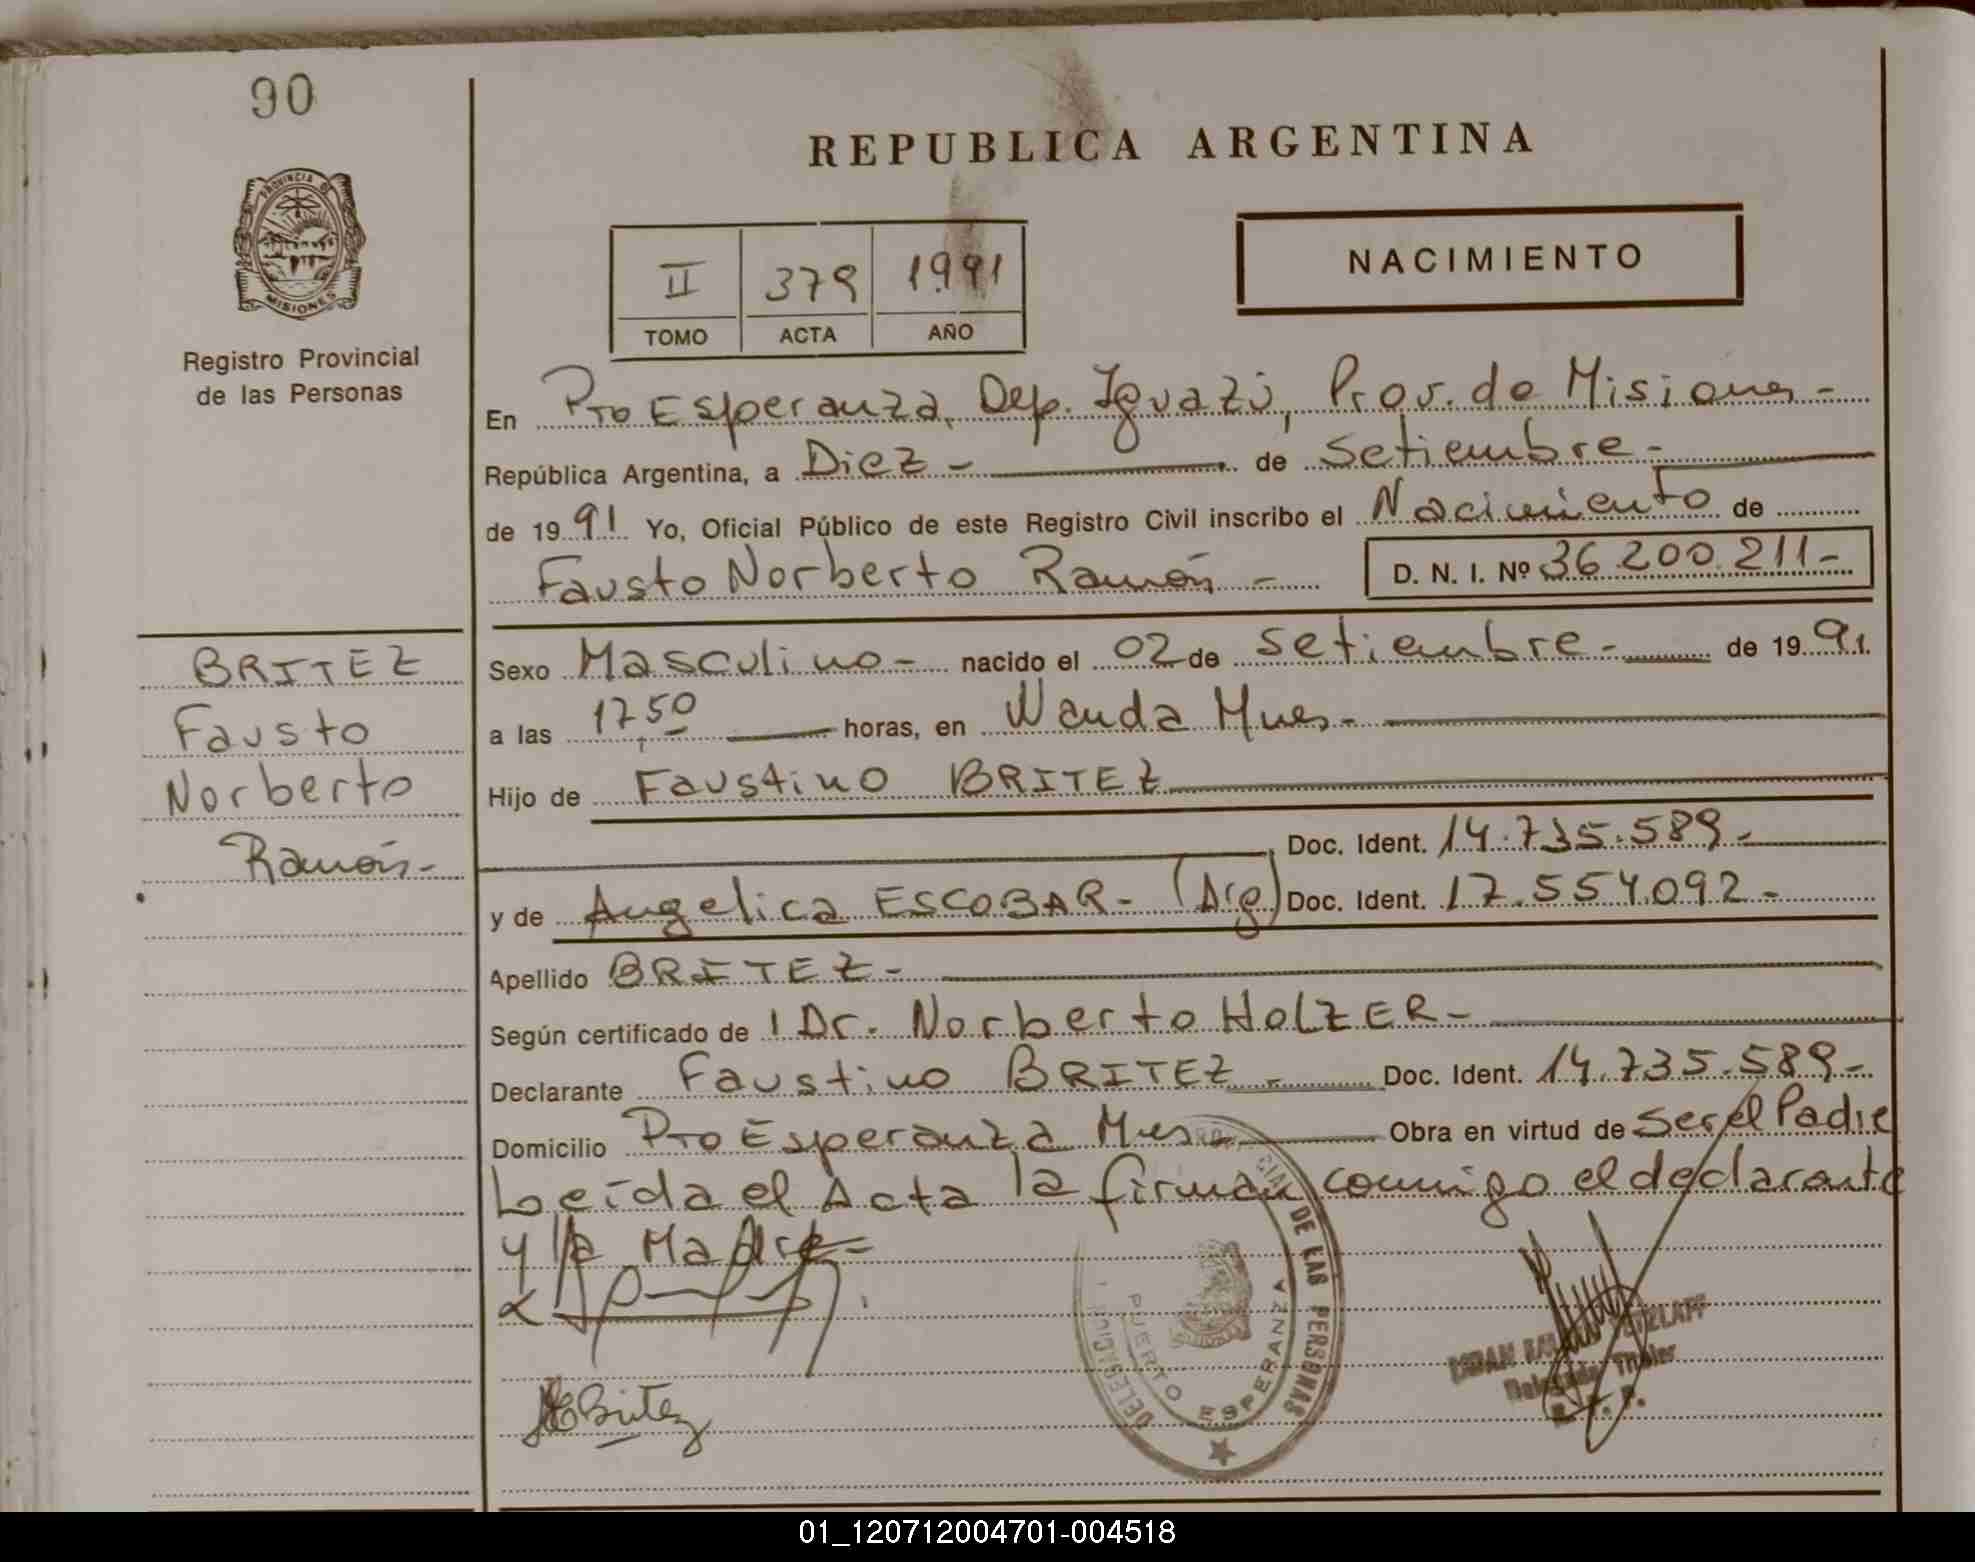 90
PROVINCIA DE
MISIONES
Registro Provincial
de las Personas
REPUBLICA ARGENTINA
NACIMIENTO
II 379 1991
TOMO ACTA AÑO
En Pto Esperanza, Dep. Iguazú, Prov. de Misiones -
República Argentina, a Diez - de Setiembre -
de 1991 Yo, Oficial Público de este Registro Civil inscribo el Nacimiento de
Fausto Norberto Ramón - D. N. I. Nº 36.200.211-
BRITEZ
Fausto
Norberto
Ramón-
Sexo Masculino - nacido el 02 de Setiembre - de 1991.
a las 17,50 horas, en Wanda Mnes -
Hijo de Faustino BRITEZ
Doc. Ident. 14.735.589 -
y de Angelica ESCOBAR - (Arg) Doc. Ident. 17.554.092 -
Apellido BRITEZ -
Según certificado de Dr. Norberto HOLZER -
Declarante Faustino BRITEZ - Doc. Ident. 14.735.589 -
Domicilio Pto Esperanza Mnes - Obra en virtud de Ser el Padre
Leída el Acta la firman conmigo el declarante
y la Madre =
DE LAS PERSONAS
PUERTO ESPERANZA
Delegado Titular
R. P. P.
Britez
01_120712004701-004518